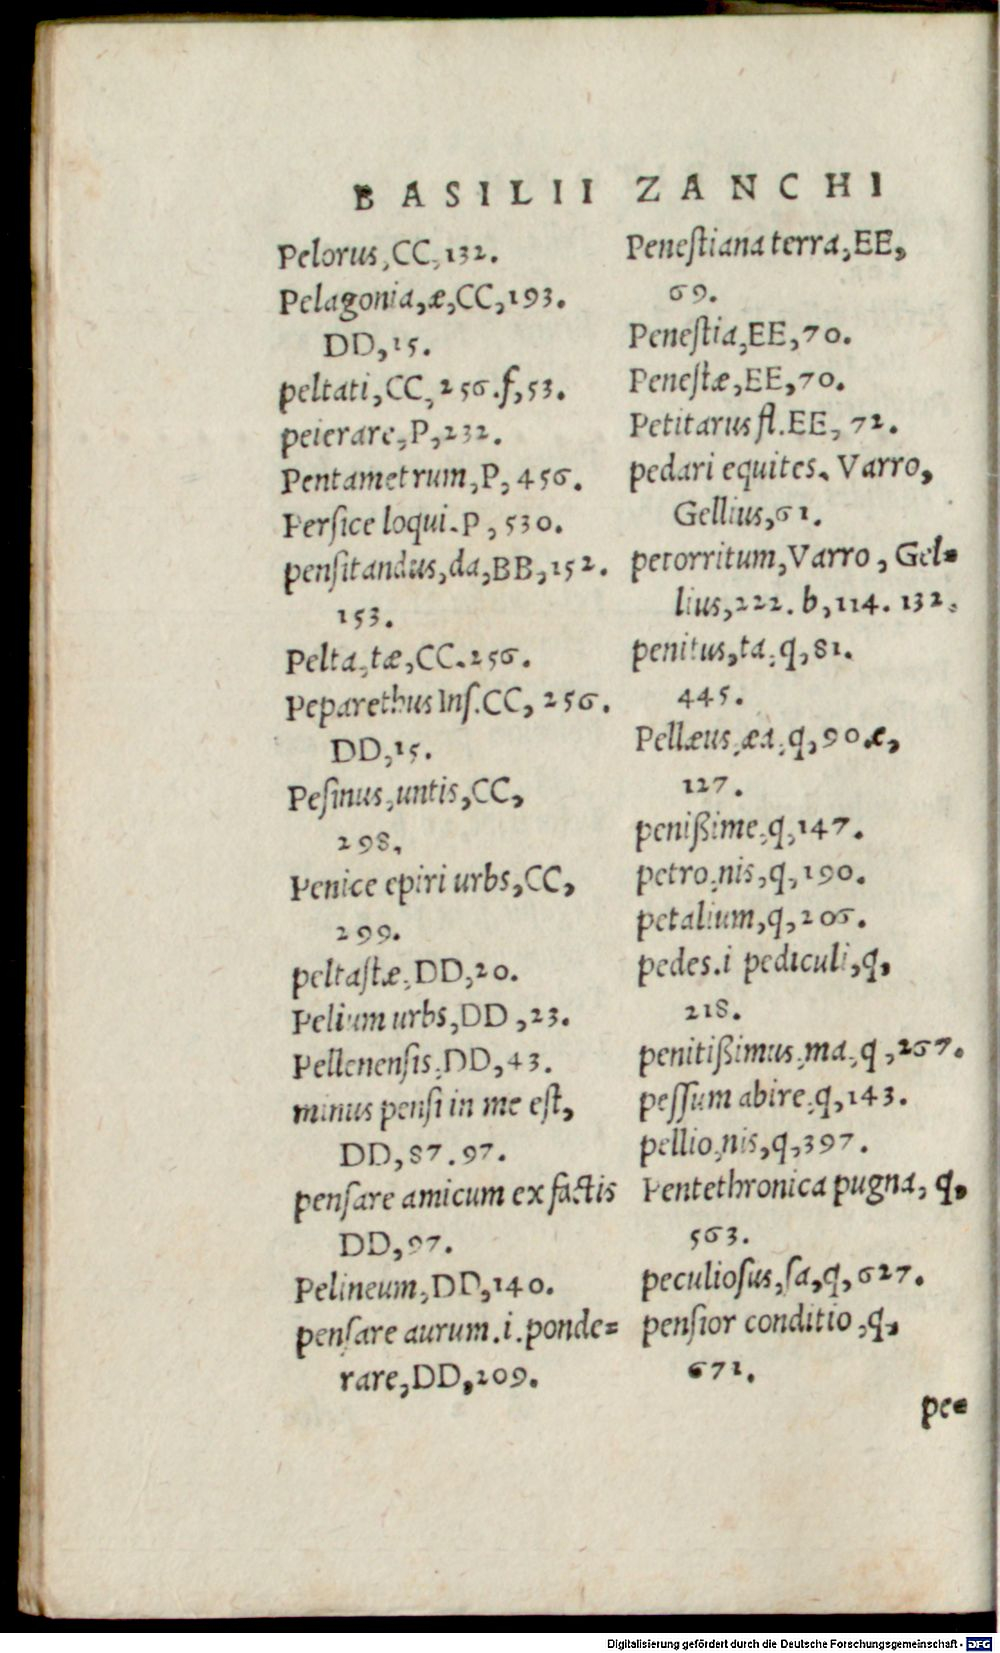 BASILII ZANCHI
Pelorus, CC, 132.
Pelagonia, æ, CC, 193.
DD, 15.
peltati, CC, 256. f, 53.
peierare, P, 232.
Pentametrum, P, 456.
Persice loqui. P, 530.
pensitandus, da, BB, 152.
153.
Pelta, tæ, CC. 256.
Peparethus Ins. CC, 256.
DD, 15.
Pesinus, untis, CC,
298.
Penice epiri urbs, CC,
299.
peltastæ, DD, 20.
Pelium urbs, DD, 23.
Pellenensis, DD, 43.
minus pensi in me est,
DD, 87. 97.
pensare amicum ex factis
DD, 97.
Pelineum, DD, 140.
pensare aurum. i. ponde=
rare, DD, 209.
Penestiana terra, EE,
69.
Penestia, EE, 70.
Penestæ, EE, 70.
Petitarus fl. EE, 72.
pedari equites. Varro,
Gellius, 61.
petorritum, Varro, Gel=
lius, 222. b, 114. 132.
penitus, ta, q, 81.
445.
Pellæus, æa, q, 90. &,
127.
penißime, q, 147.
petro, nis, q, 190.
petalium, q, 206.
pedes. i pediculi, q,
218.
penitißimus, ma, q, 267.
pessum abire, q, 143.
pellio, nis, q, 397.
Pentethronica pugna, q,
563.
peculiosus, sa, q, 627.
pensior conditio, q,
671.
pe=
Digitalisierung gefördert durch die Deutsche Forschungsgemeinschaft - DFG